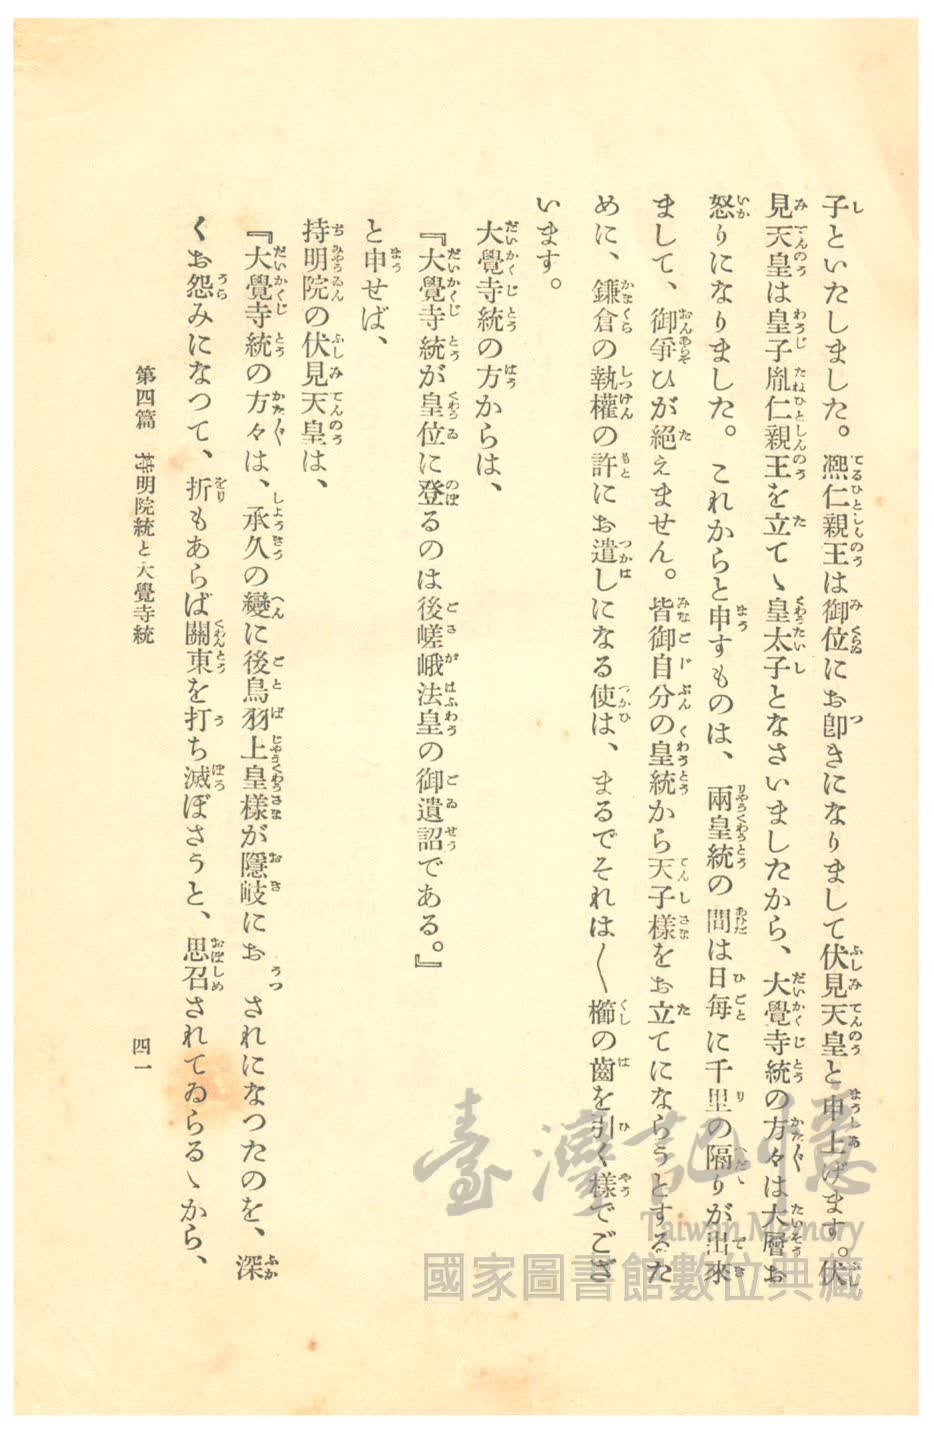 子といたしました。熈仁親王は御位にお卽きになりまして伏見天皇と申上げます。伏
見天皇は皇子胤仁親王を立てゝ皇太子となさいましたから、大覺寺統の方々は大層お
怒りになりました。これからと申すものは、兩皇統の間は日每に千里の隔りが出來
まして、御爭ひが絕えません。皆御自分の皇統から天子樣をお立てにならうとするた
めに、鎌倉の執權の許にお遣しになる使は、まるでそれは〱櫛の齒を引く樣でござ
います。
大覺寺統の方からは、
『大覺寺統が皇位に登るのは後嵯峨法皇の御遺詔である。』
と申せば、
持明院の伏見天皇は、
『大覺寺統の方々は、承久の變に後鳥羽上皇樣が隱岐にお されになつたのを、深
くお怨みになつて、折もあらば關東を打ち滅ぼさうと、思召されてゐらるゝから、
第四篇 持明院統と大覺寺統
四一
臺灣記憶
Taiwan Memory
國家圖書館數位典藏